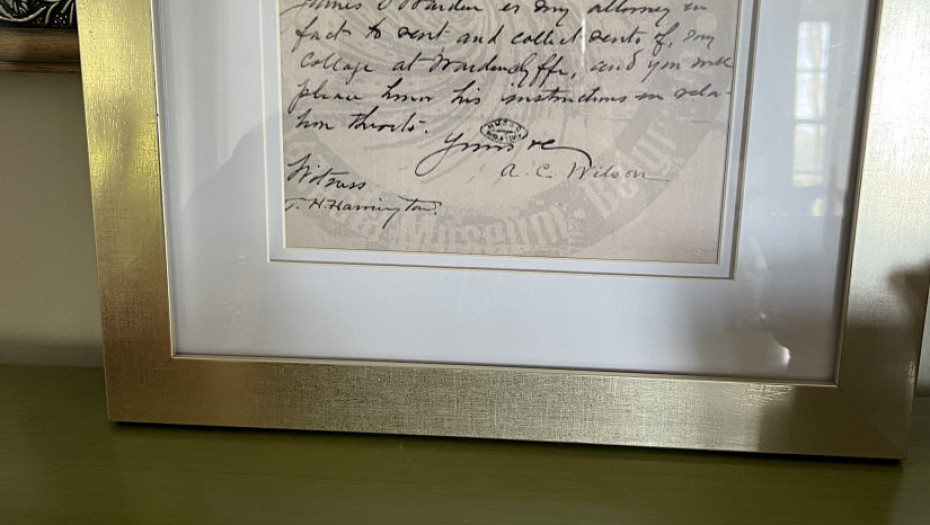 James D Warden is my attorney in
fact to rent and collect rents of, my
Cottage at Wardenclyffe, and you will
please honor his instructions in rela-
tion thereto.
Yours &c
A. C. Wilson
Witness
T. H. Harrington.
Museum · Belgr